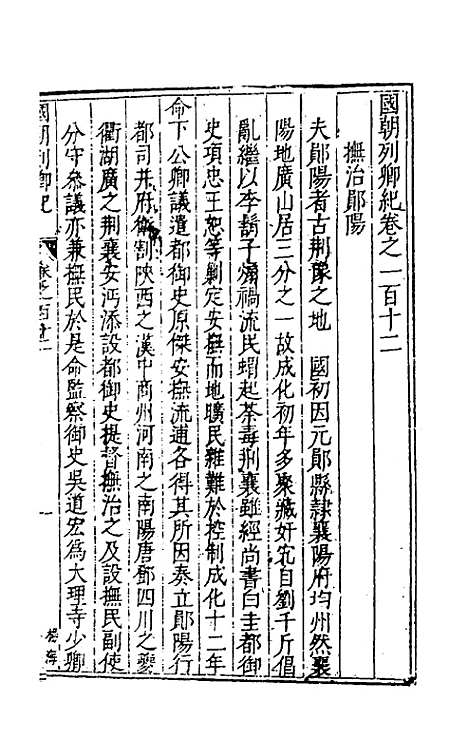 國朝列卿紀卷之一百十二
撫治鄖陽
夫鄖陽者古荆豫之地　國初因元鄖縣隷襄陽府均州然襄
陽地廣山居三分之一故成化初年多聚藏奸宄自劉千斤倡
亂繼以李鬍子煽禍流民蝟起荼毒荆襄雖經尚書白圭都御
史項忠王恕等剿定安撫而地曠民雜難於控制成化十二年
命下公卿議遣都御史原傑安撫流逋各得其所因奏立鄖陽行
都司并府衛割陜西之漢中商州河南之南陽唐鄧四川之夔
衝湖廣之荆襄安沔添設都御史提督撫治之及設撫民副使
分守叅議亦兼撫民於是命監察御史吳道宏爲大理寺少卿
國朝列卿紀
卷之一百十二
一